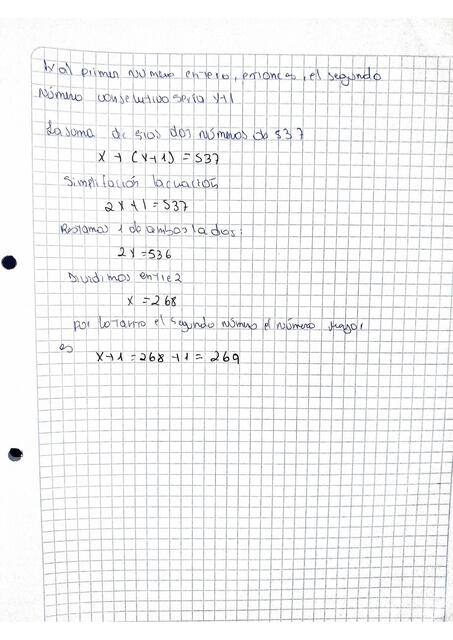 al primer número entero, entonces, el segundo
número consecutivo seria x+1
La suma de esos dos números da 537
x + (x+1) = 537
Simplificación la cuación
2x+1 = 537
Restamos 1 de ambos lados:
2x = 536
Dividimos entre 2
x = 268
por lo tanto el segundo número el número mayor
es
x+1 = 268 +1 = 269